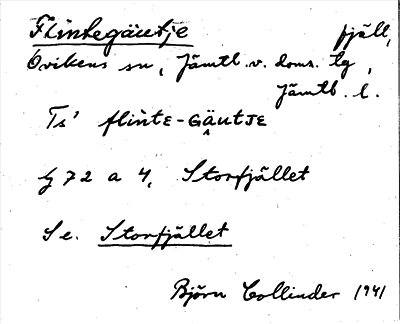 Flintegäutje fjäll,
Ovikens sn, Jämtl. v. doms. lg,
Jämtl. l.
Ts' flintE-Gäutje
g 72 a 4, Storfjället
Se. Storfjället
Björn Collinder 1941